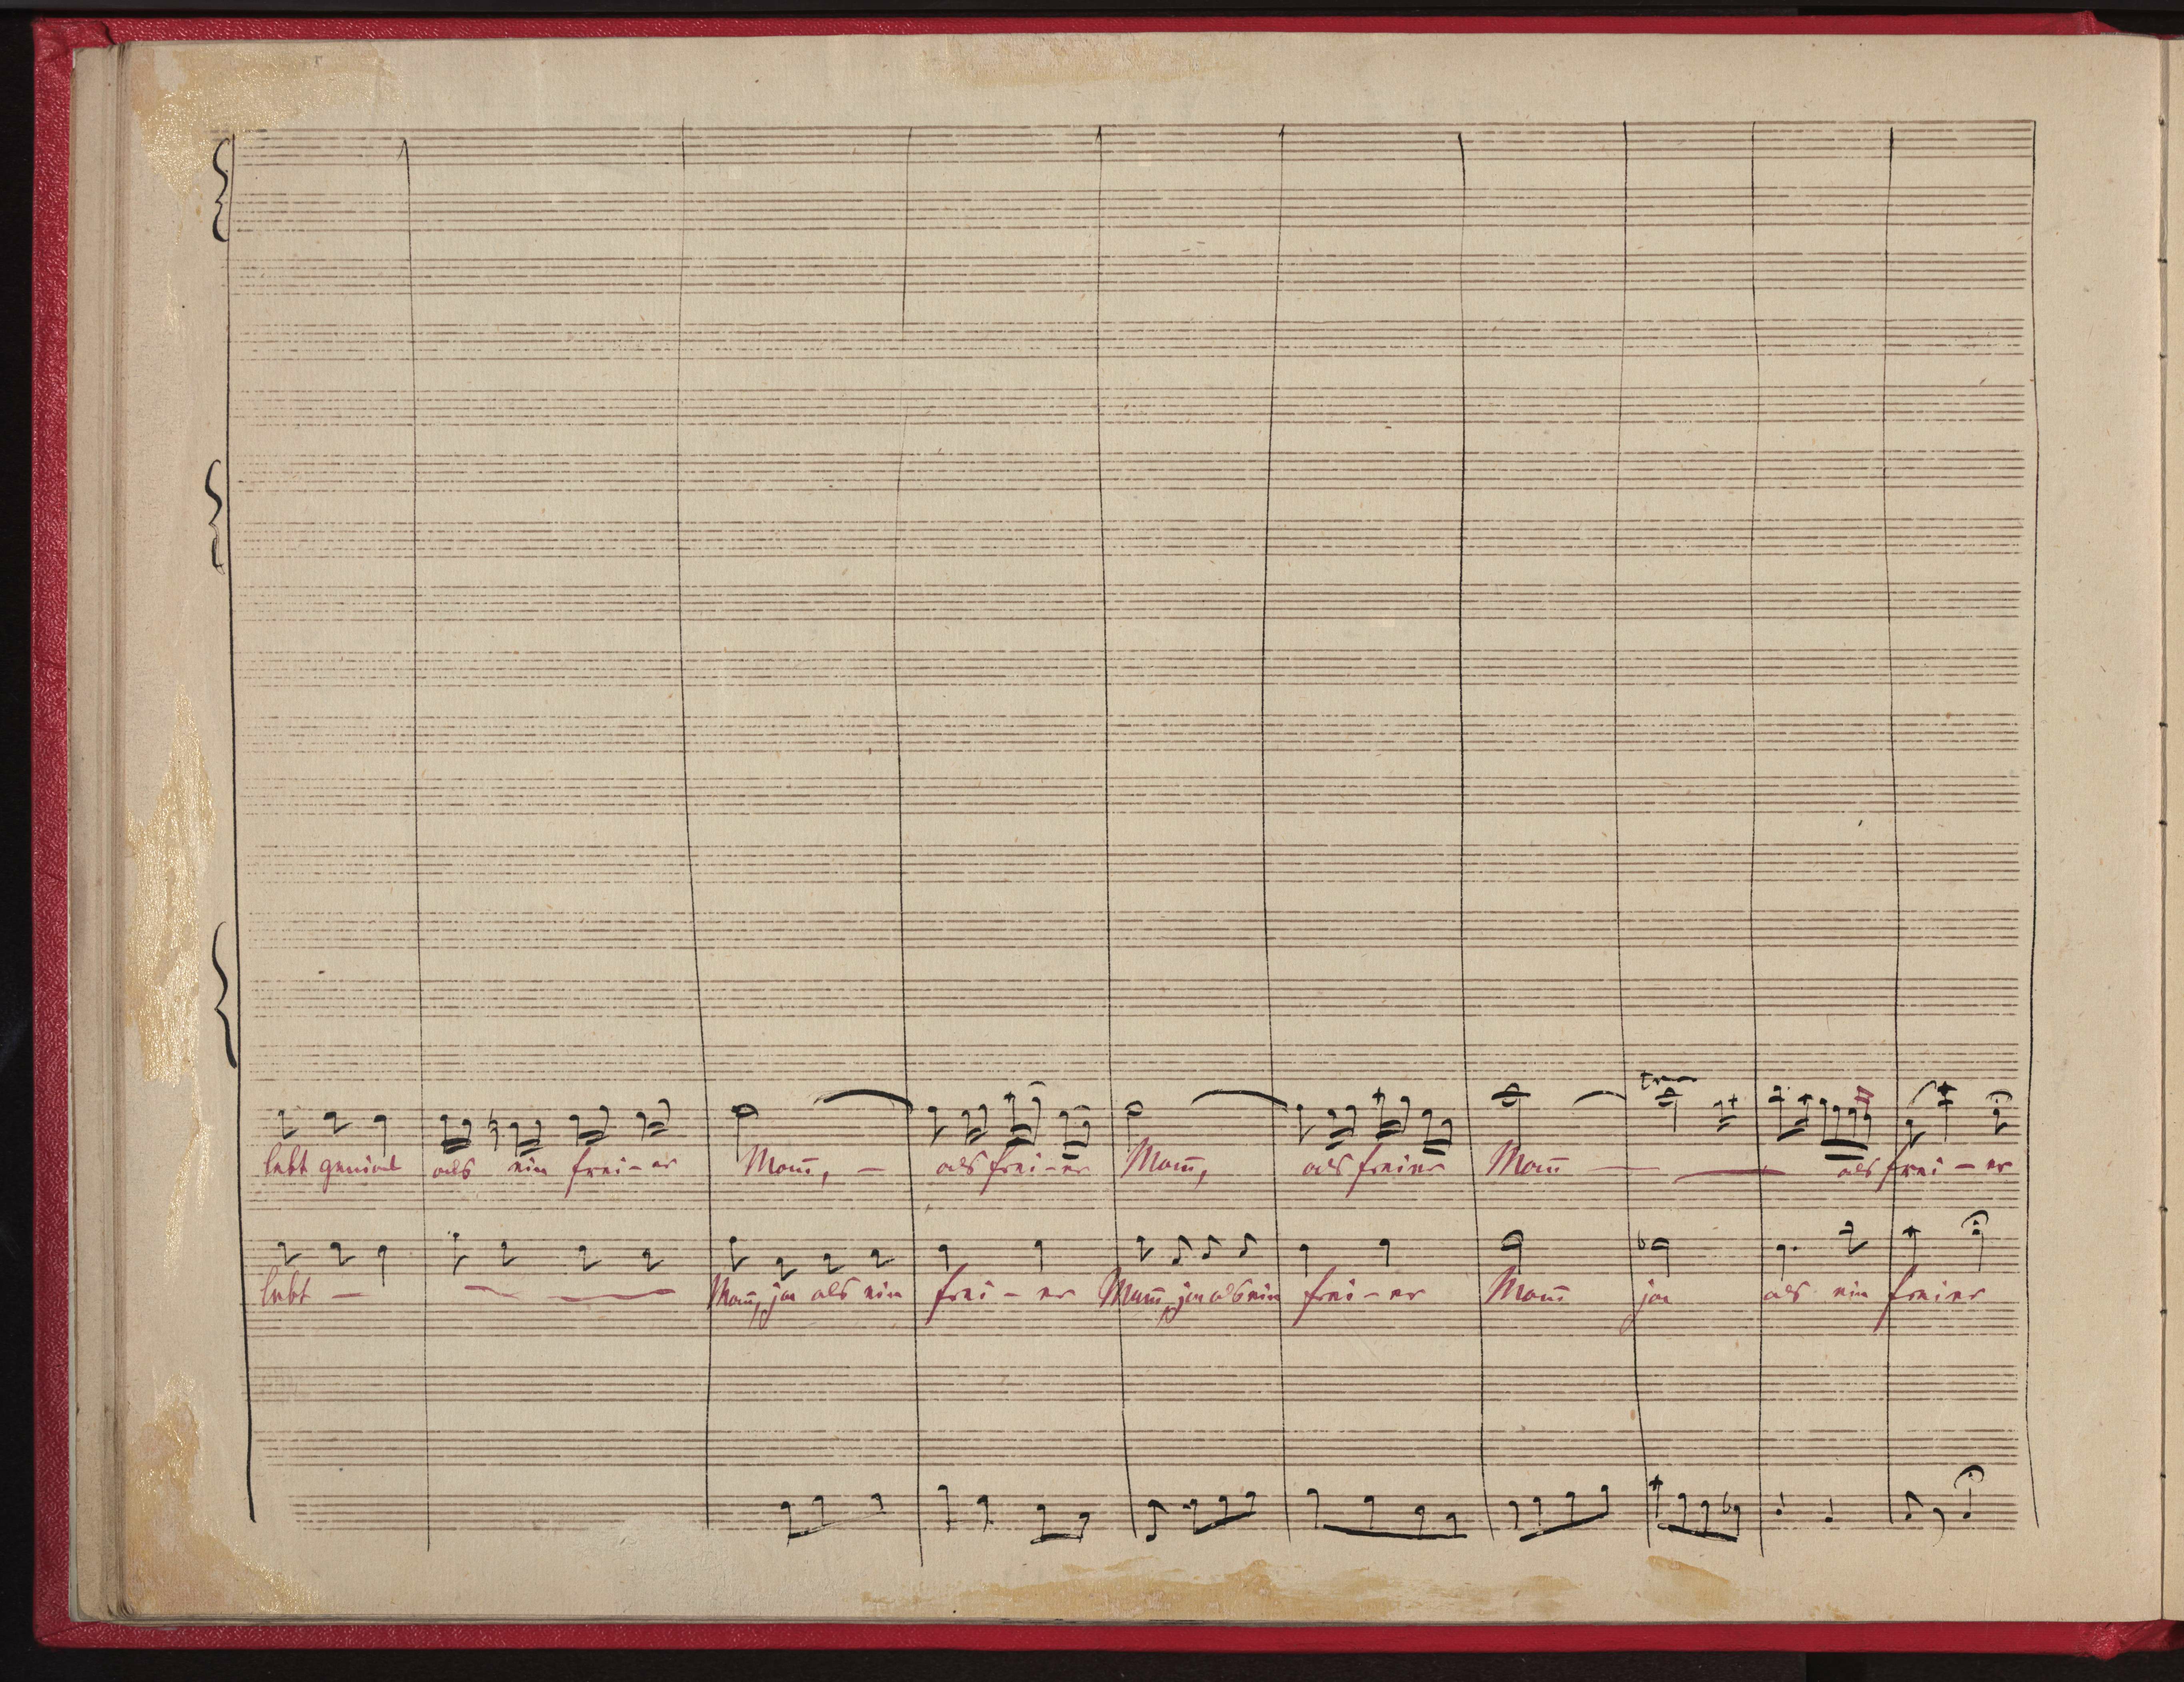 tr
lebt genial als ein frei-er Mann, - als frei-er Mann, als freier Mann — — als frei-er
lebt - Mann, ja als ein frei-er Mann, ja als ein frei-er Mann ja als ein freier